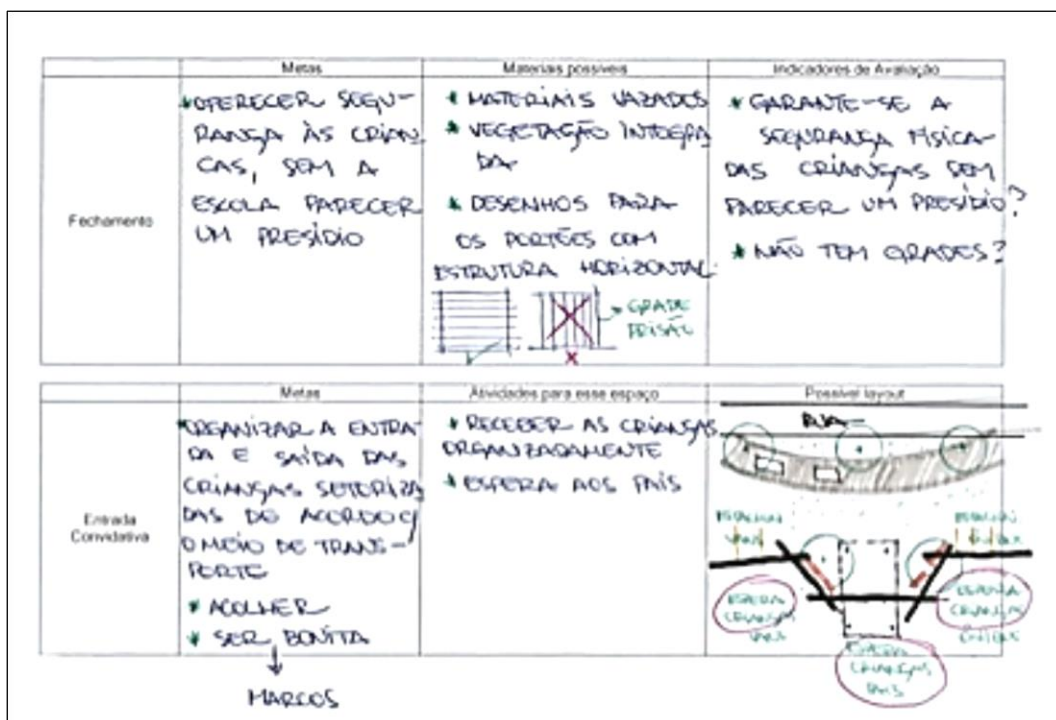 Metas
Materiais possíveis
Indicadores de Avaliação
Fechamento
* OFERECER SEGU-
RANÇA ÀS CRIAN
CAS, SEM A
ESCOLA PARECER
UM PRESÍDIO
* MATERIAIS VAZADOS
* VEGETAÇÃO INTEGRA
DA
* DESENHOS PARA
OS PORTÕES COM
ESTRUTURA HORIZONTAL
GRADE
PRISÃO
* GARANTE-SE A
SEGURANÇA FÍSICA
DAS CRIANÇAS SEM
PARECER UM PRESÍDIO?
* NÃO TEM GRADES?
Metas
Atividades para esse espaço
Possível layout
Entrada
Convidativa
* ORGANIZAR A ENTRA-
DA E SAÍDA DAS
CRIANÇAS SETORIZA
DAS DE ACORDO C/
O MEIO DE TRANS-
PORTE
* ACOLHER
* SER BONITA
MARCOS
* RECEBER AS CRIANÇAS
ORGANIZADAMENTE
* ESPERA AOS PAÍS
RUA
ESTACION
VANS
ESTACION
ESPERA
CRIANÇAS
VANS
ESPERA
CRIANÇAS
ESPERA
CRIANÇAS
PAIS